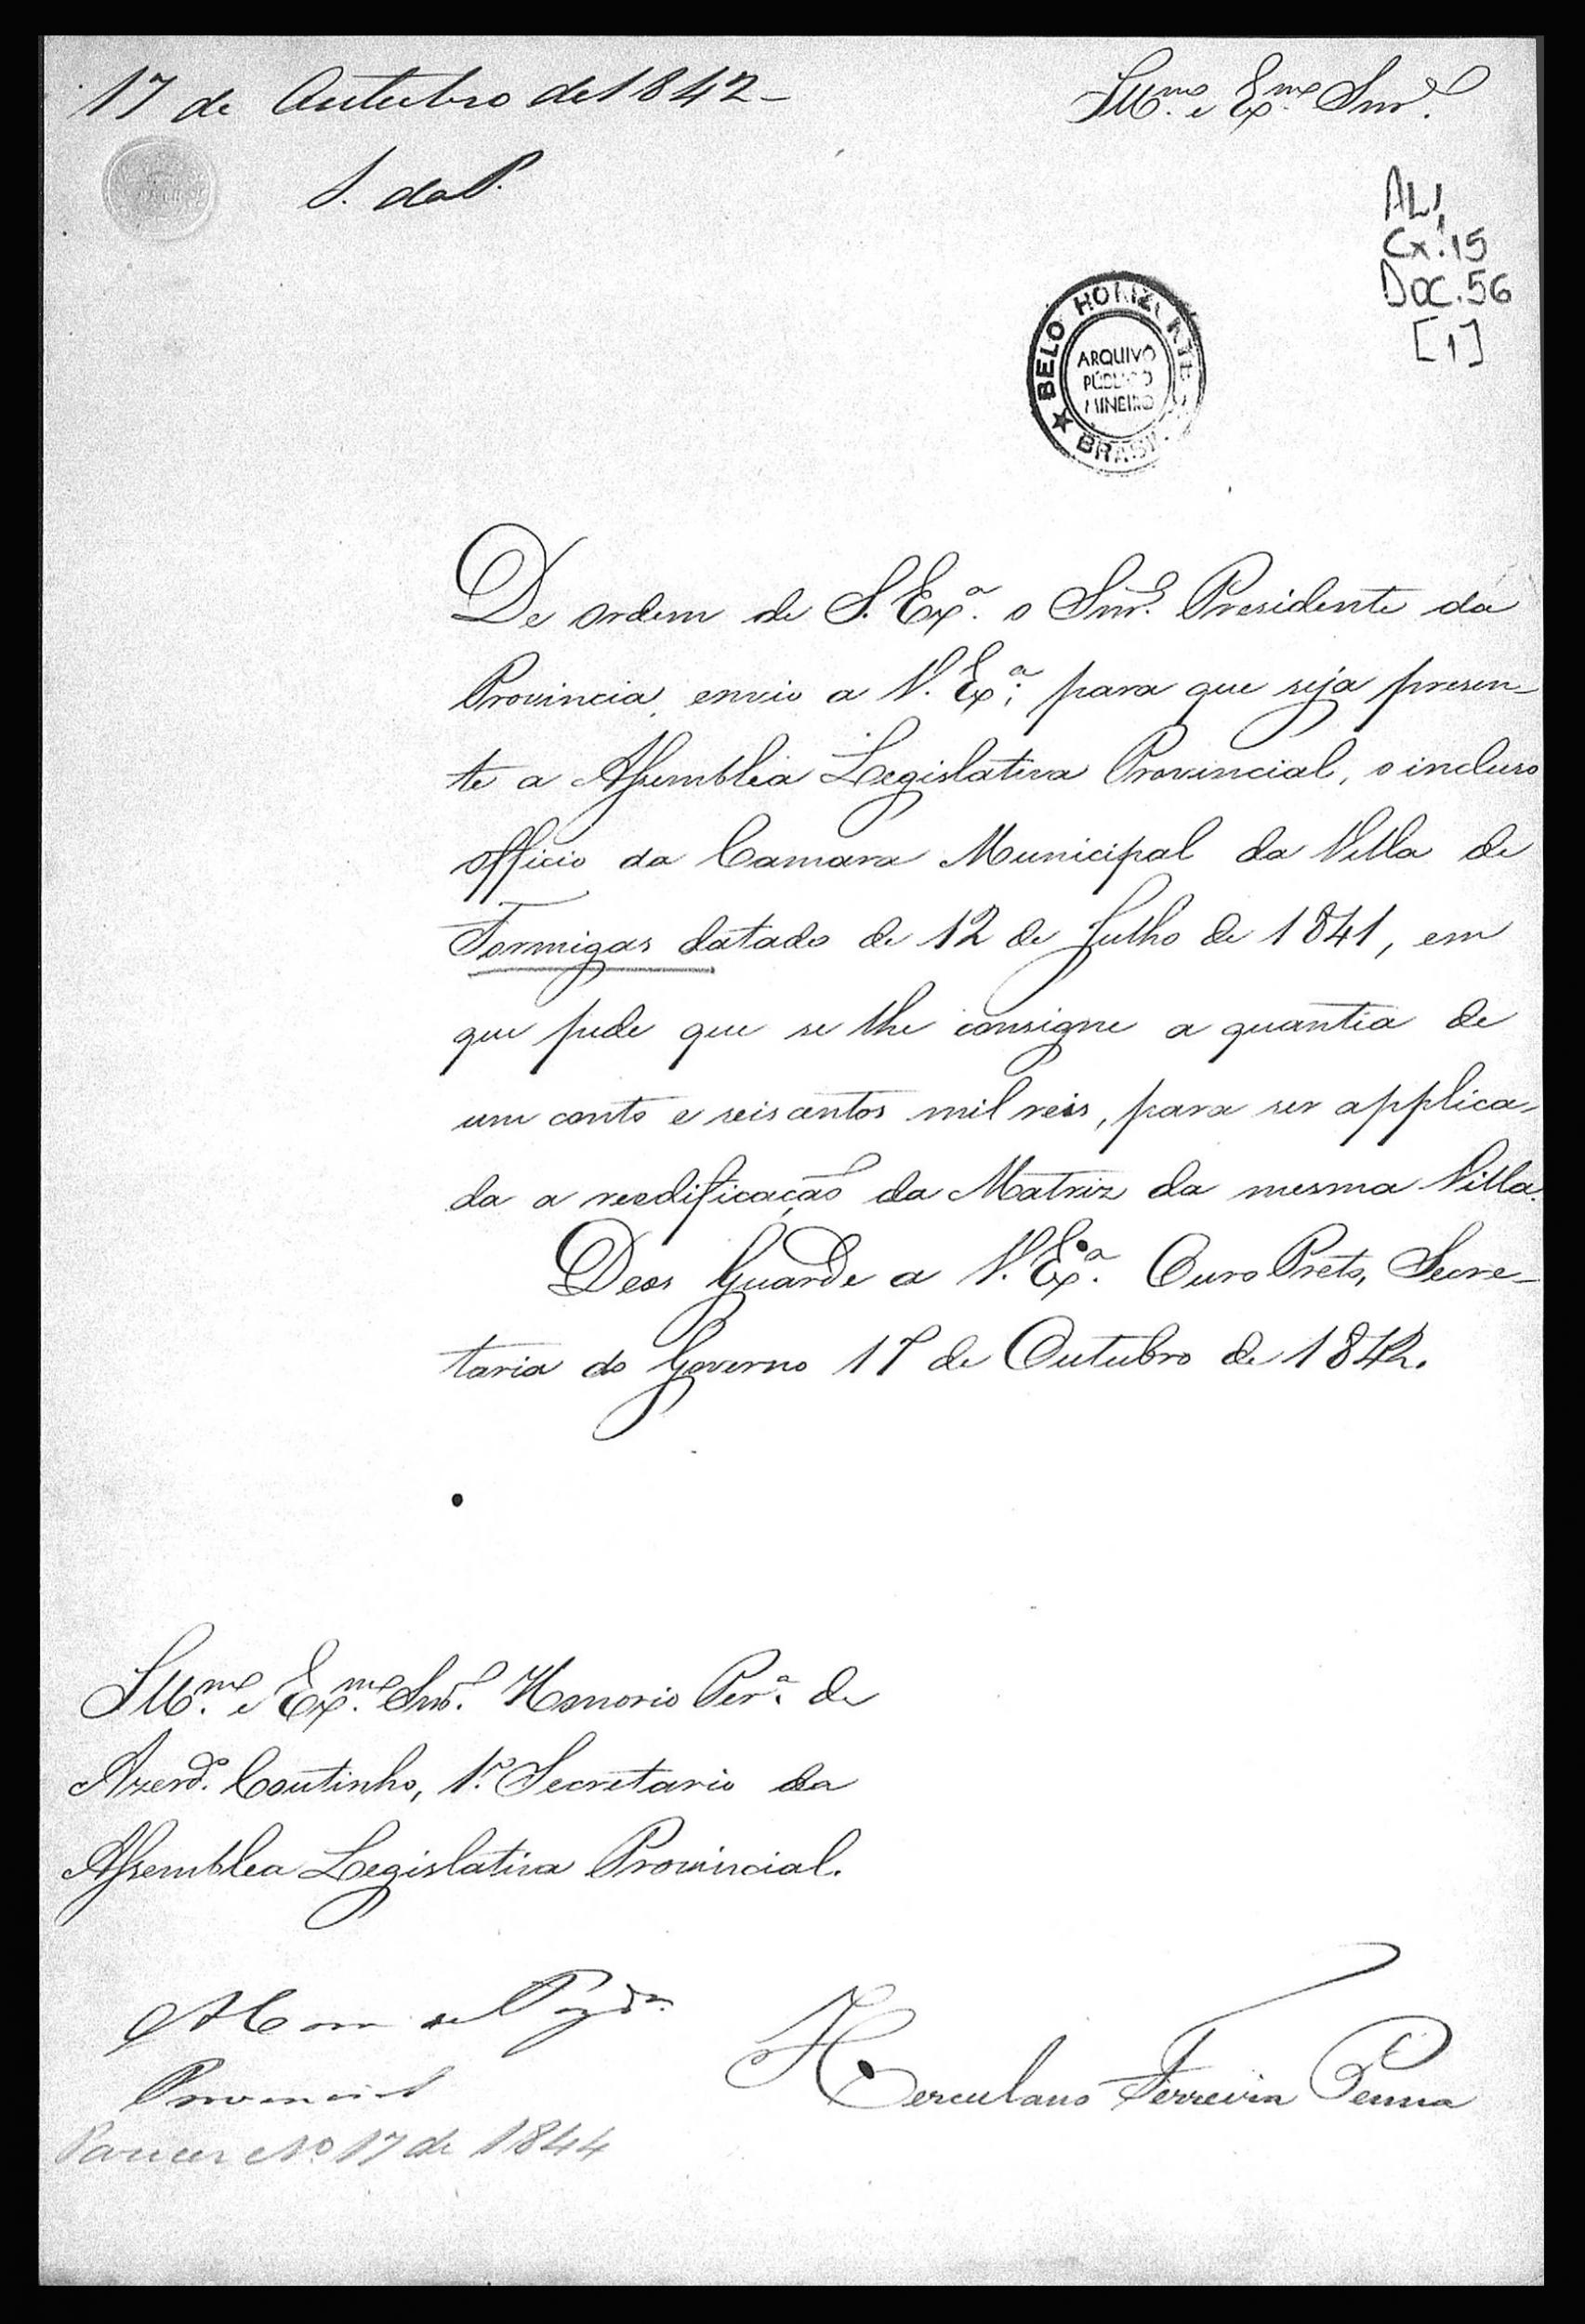 17 de Outubro de 1842 -
Illmo. e Exmo. Snr.
S. da P.
AL1,
Cx. 15
Doc. 56
[1]
BELO HORIZONTE BRASIL
ARQUIVO
PÚBLICO
MINEIRO
De ordem de S. Exa. o Snr. Presidente da
Provincia envio a V. Exa; para que seja presen-
te a Assemblea Legislativa Provincial, o incluso
officio da Camara Municipal da Villa de
Formigas datado de 12 de Julho de 1841, em
que pede que se lhe consigne a quantia de
um conto e seis centos mil reis, para ser applica-
da a reedificação da Matriz da mesma Villa.
Deos Guarde a V. Exa. Ouro Preto, Secre-
taria do Governo 17 de Outubro de 1842.
Illmo. e Exmo. Snr. Honorio Pera. de
Azerdo. Coutinho, 1º. Secretario da
Assemblea Legislativa Provincial.
Provincial
Herculano Ferreira Penna
Parecer No 17 de 1844